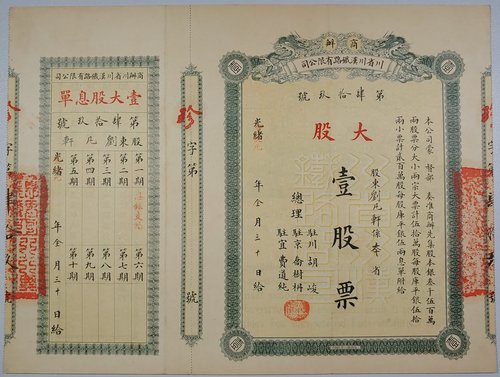 商辦
川省川漢鐵路有限公司
第肆拾玖號
大股
本公司蒙 督部 奏准商辦先集股本銀叁千伍百萬
兩股票分大小兩宗大票計伍拾萬股每股庫平銀伍拾
兩小票計貳百萬股每股庫平銀伍兩息單附給
股東劉凡軒係本 省
壹股票
總理
駐川胡峻
駐京喬樹枏
駐宜費道純
光緒 年 月三十日給
字第 號
商辦川省川漢鐵路有限公司
壹大股息單
第肆拾玖號
股東劉凡軒
第一期 第六期
第二期 第七期
第三期 第八期
第四期 第九期
第五期 第十期
光緒 年 月三十日給